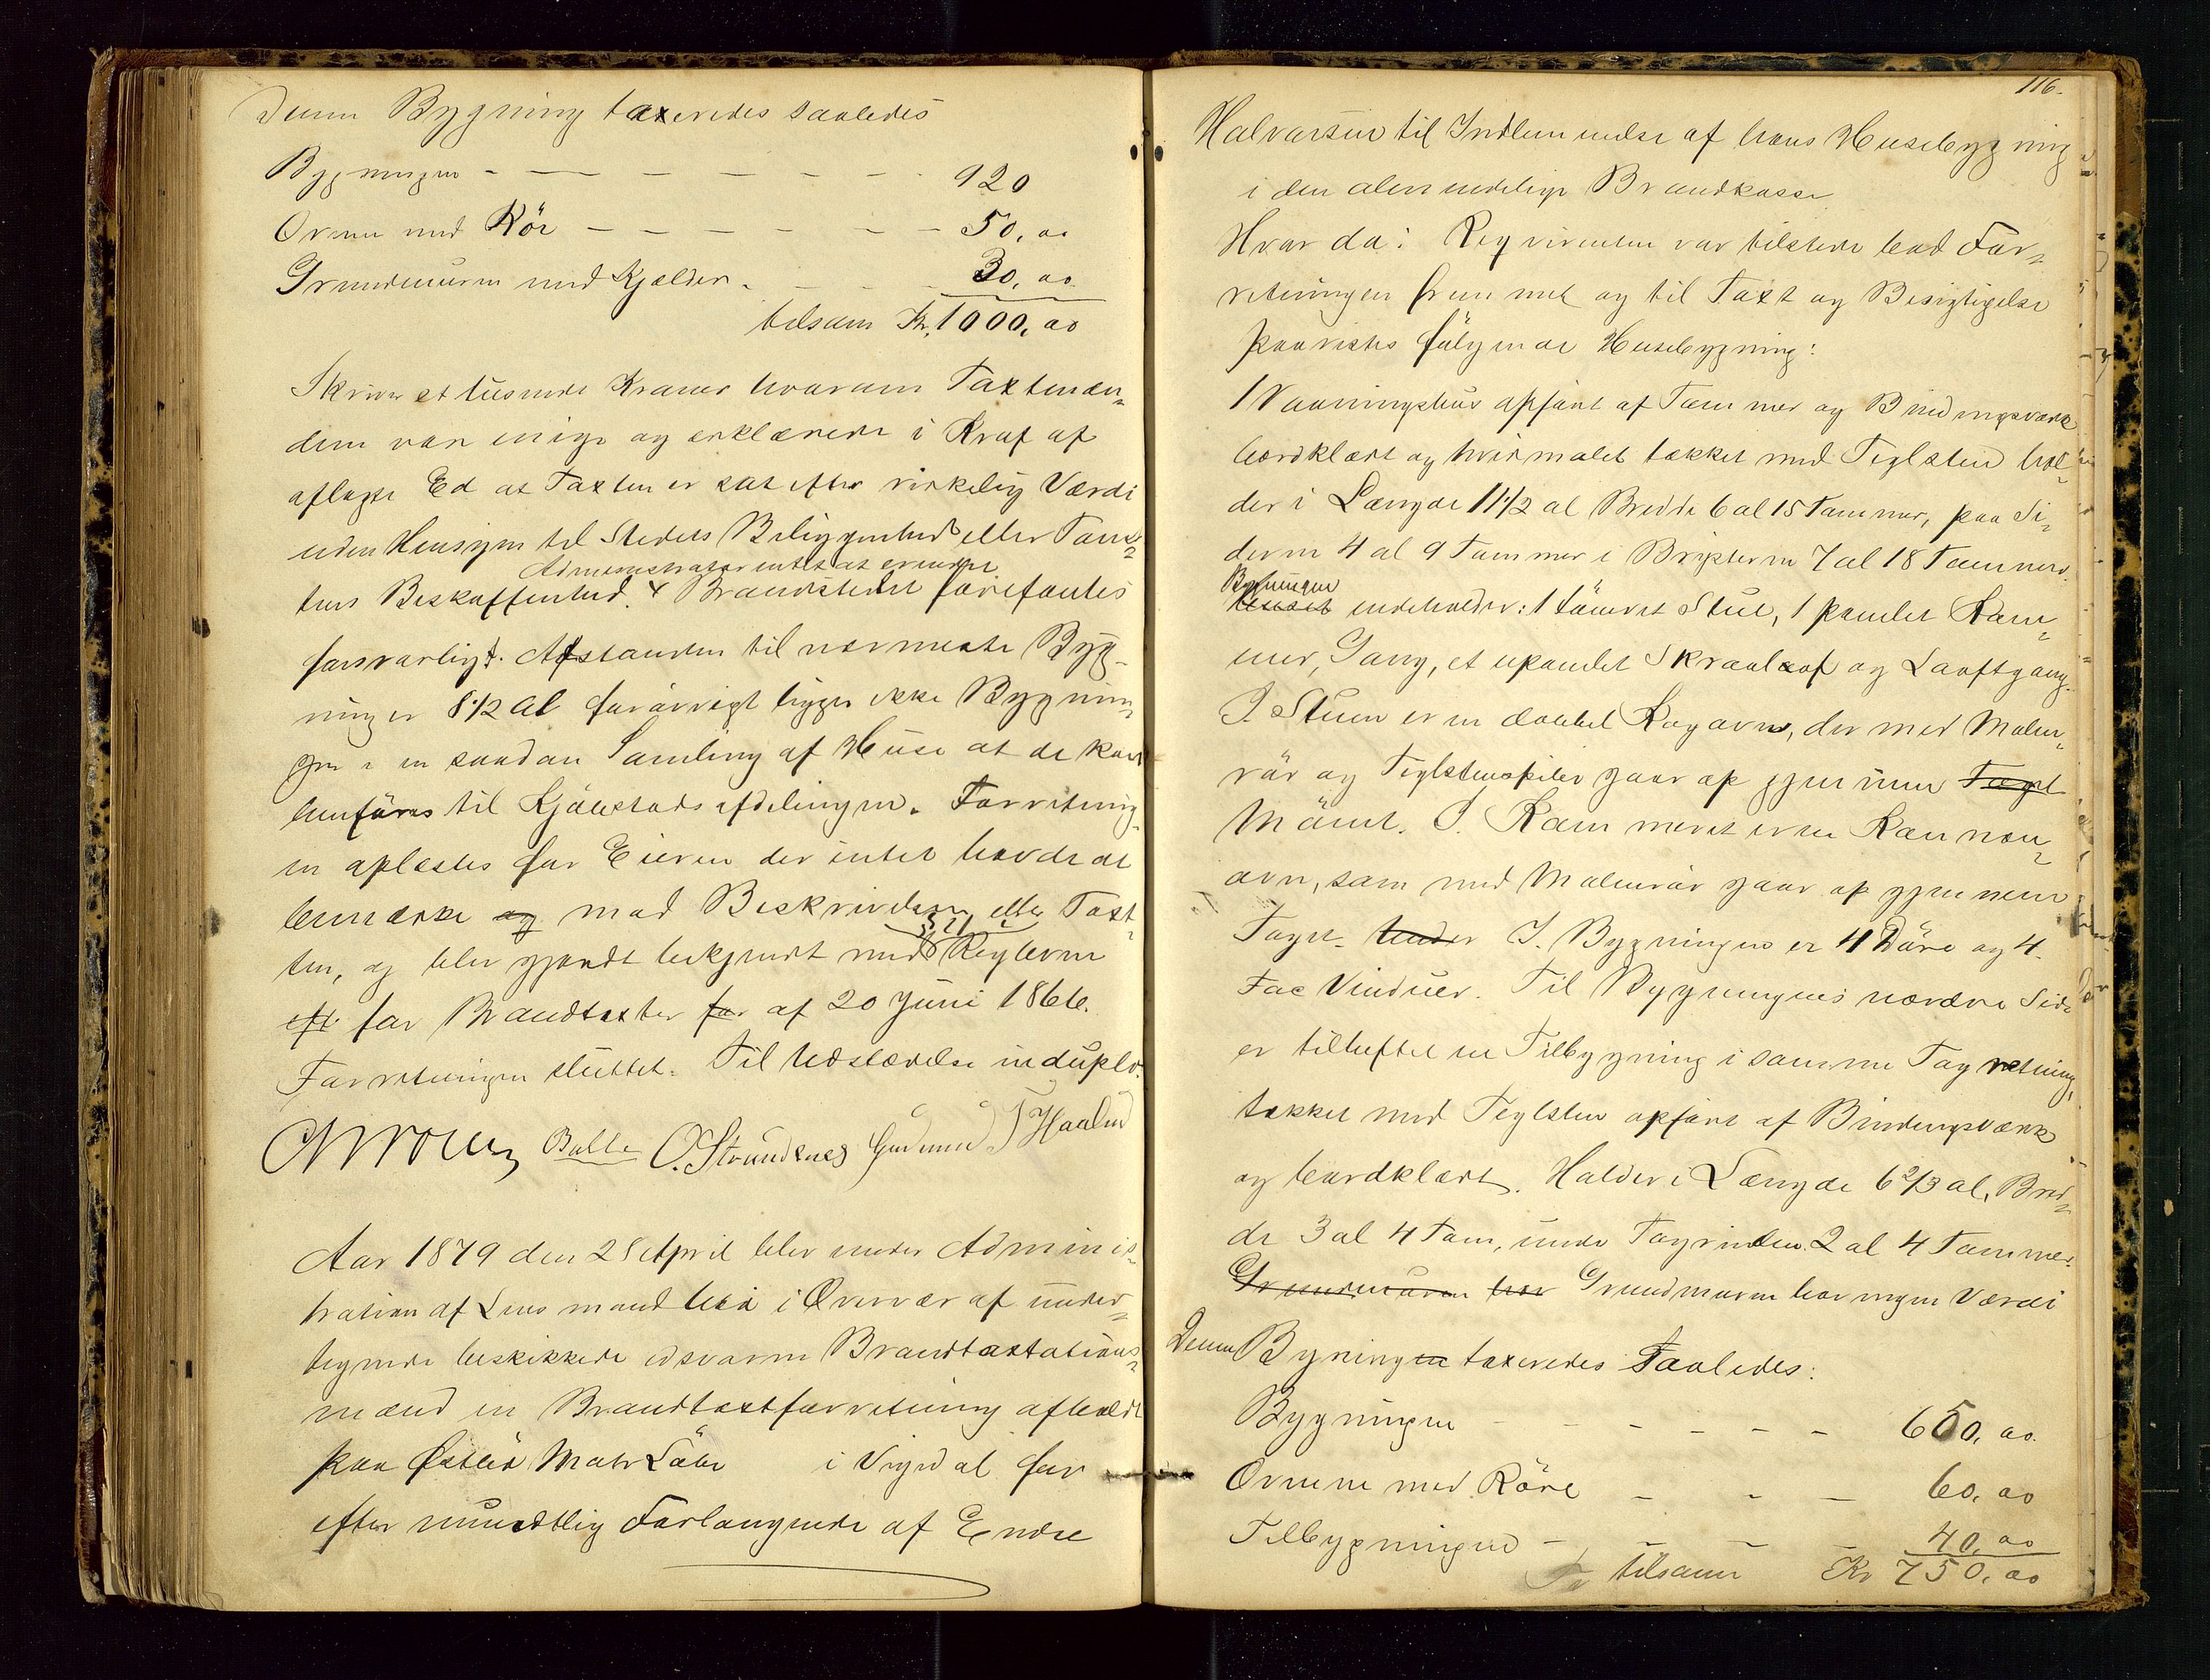 Denne Bygning taxeredes saaledes
Bygningen - - - - - - - 920
Ovnen med Rör - - - - - - 50,00
Grundmuren med Kjelder - - - 30,00
tilsam Kr. 1000,00
Skriver et tusende Kroner hvorom Taxtmæn-
dene var enige og erklærede i Kraf af
aflagte Ed at Taxten er sat efter virkelig Værdi
uden Hensyn til Stedets Beliggenhed eller Tom-
tens Beskaffenhed. x Brandstedet forefantes
Administrator intet at erindre
forsvarligt. Afstanden til nærmeste Byg-
ning er 8 1/2 Al forövrigt ligger ikke Bygnin-
gen i en saadan Samling af Huse at de kan
henföres til Kjöbstadsafdelingen. Forretning-
en oplæstes for Eieren der intet havde at
bemærke og mod Beskrivelsen eller Taxt-
ten, og blev gjordt bekjendt med § 21 i Reglerne
eft for Brandtaxter for af 20 Juni 1866.
Forretningen sluttet. Til Udstædelse in duplo.
Balle O. Strandenes Gudmund T Haaland
Aar 1879 den 28 April blev under Adminis-
tration af Lensmand i Overvær af under-
tegnede beskikkede edsvorne Brandtaxtations-
mænd en Brandtaxtforretning afholdt
paa Östhus Matr Löbe i Vigedal for
efter mundtlig Forlangende af Endre
116.
Halvarsen til Indlemmelse af hans Husebygning
i den almindelige Brandkasse
Hvor da: Reqvirenten var tilstede bad For-
retningen fremmet og til Taxt og Besigtigelse
paavistes fölgende Husebygning:
1 Vaaningshus opfört af Tømmer og Bindingsværk
bordklædt og hvidmalet tækket med Teglsten hol-
der i Længde 11 1/2 al Bredde 6 al 15 Tommer, paa Si-
derne 4 al 9 Tommer i Brÿsterne 7 al 18 Tommer.
Bygningen
Huset indeholder: 1 tömret Stue, 1 panelet Kam-
mer, Gang, et upanelet Skraalaft og Looftgang.
I Stuen er en dobbel Kogovn, der med Malm-
rör og Teglstenspibe gaar op gjennem Taget
Mönet. I Kammeret er en Kannon-
ovn, som med Malmrör gaar op gjennem
Taget. Under I Bygningen er 4 Döre og 4.
Fac Vinduer. Til Bygningens nordre Side
er tilheftet en Tilbygning i samme Tagretning,
tækket med Teglsten opfört af Bindingsværk
og bordklædt. Holder i Længde 6 2/3 al, Bred-
de 3 al 4 Tom, under Tagrinden 2 al 4 Tommer.
Grundmuren har Grundmuren har ingen Værdi
Denne Bygningen taxeredes saaledes:
Bygningen - - - - - 650,00
Ovnene med Röre - - - 60,00
Tilbygningen - - - - 40,00
tilsam Kr 750,00